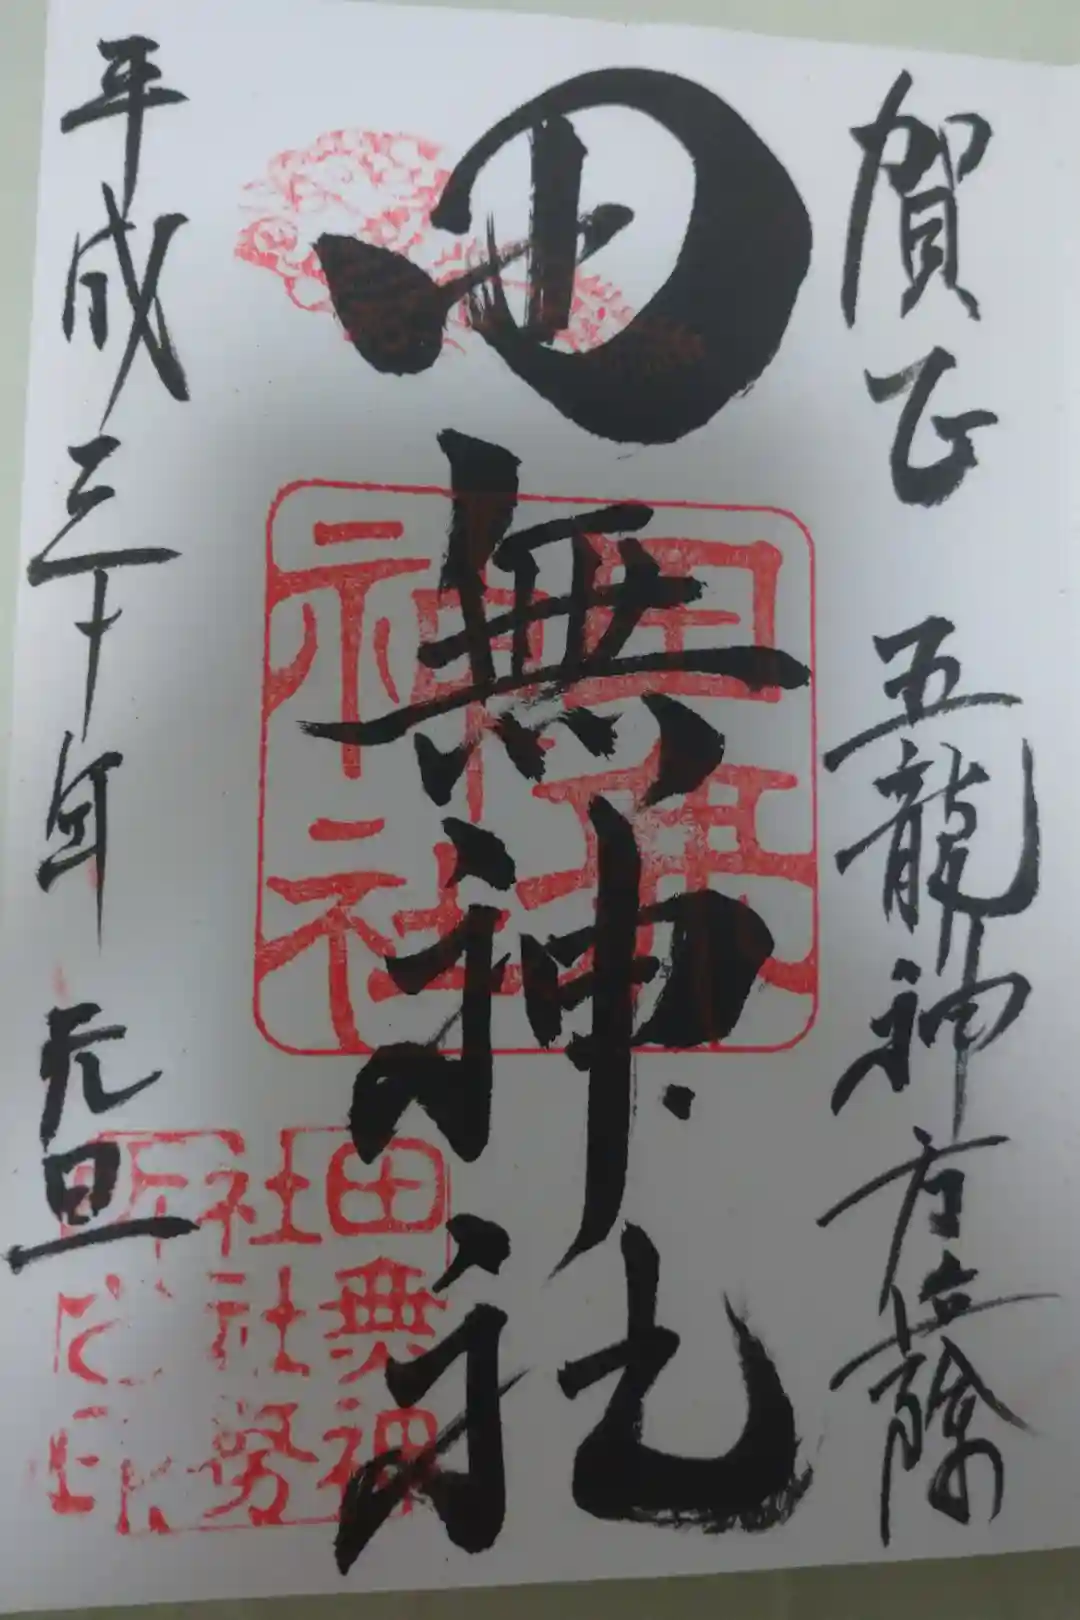 賀正 五龍神方位除
田無神社
平成三十年 元旦
田無
神社
田無神
社社務
所之印